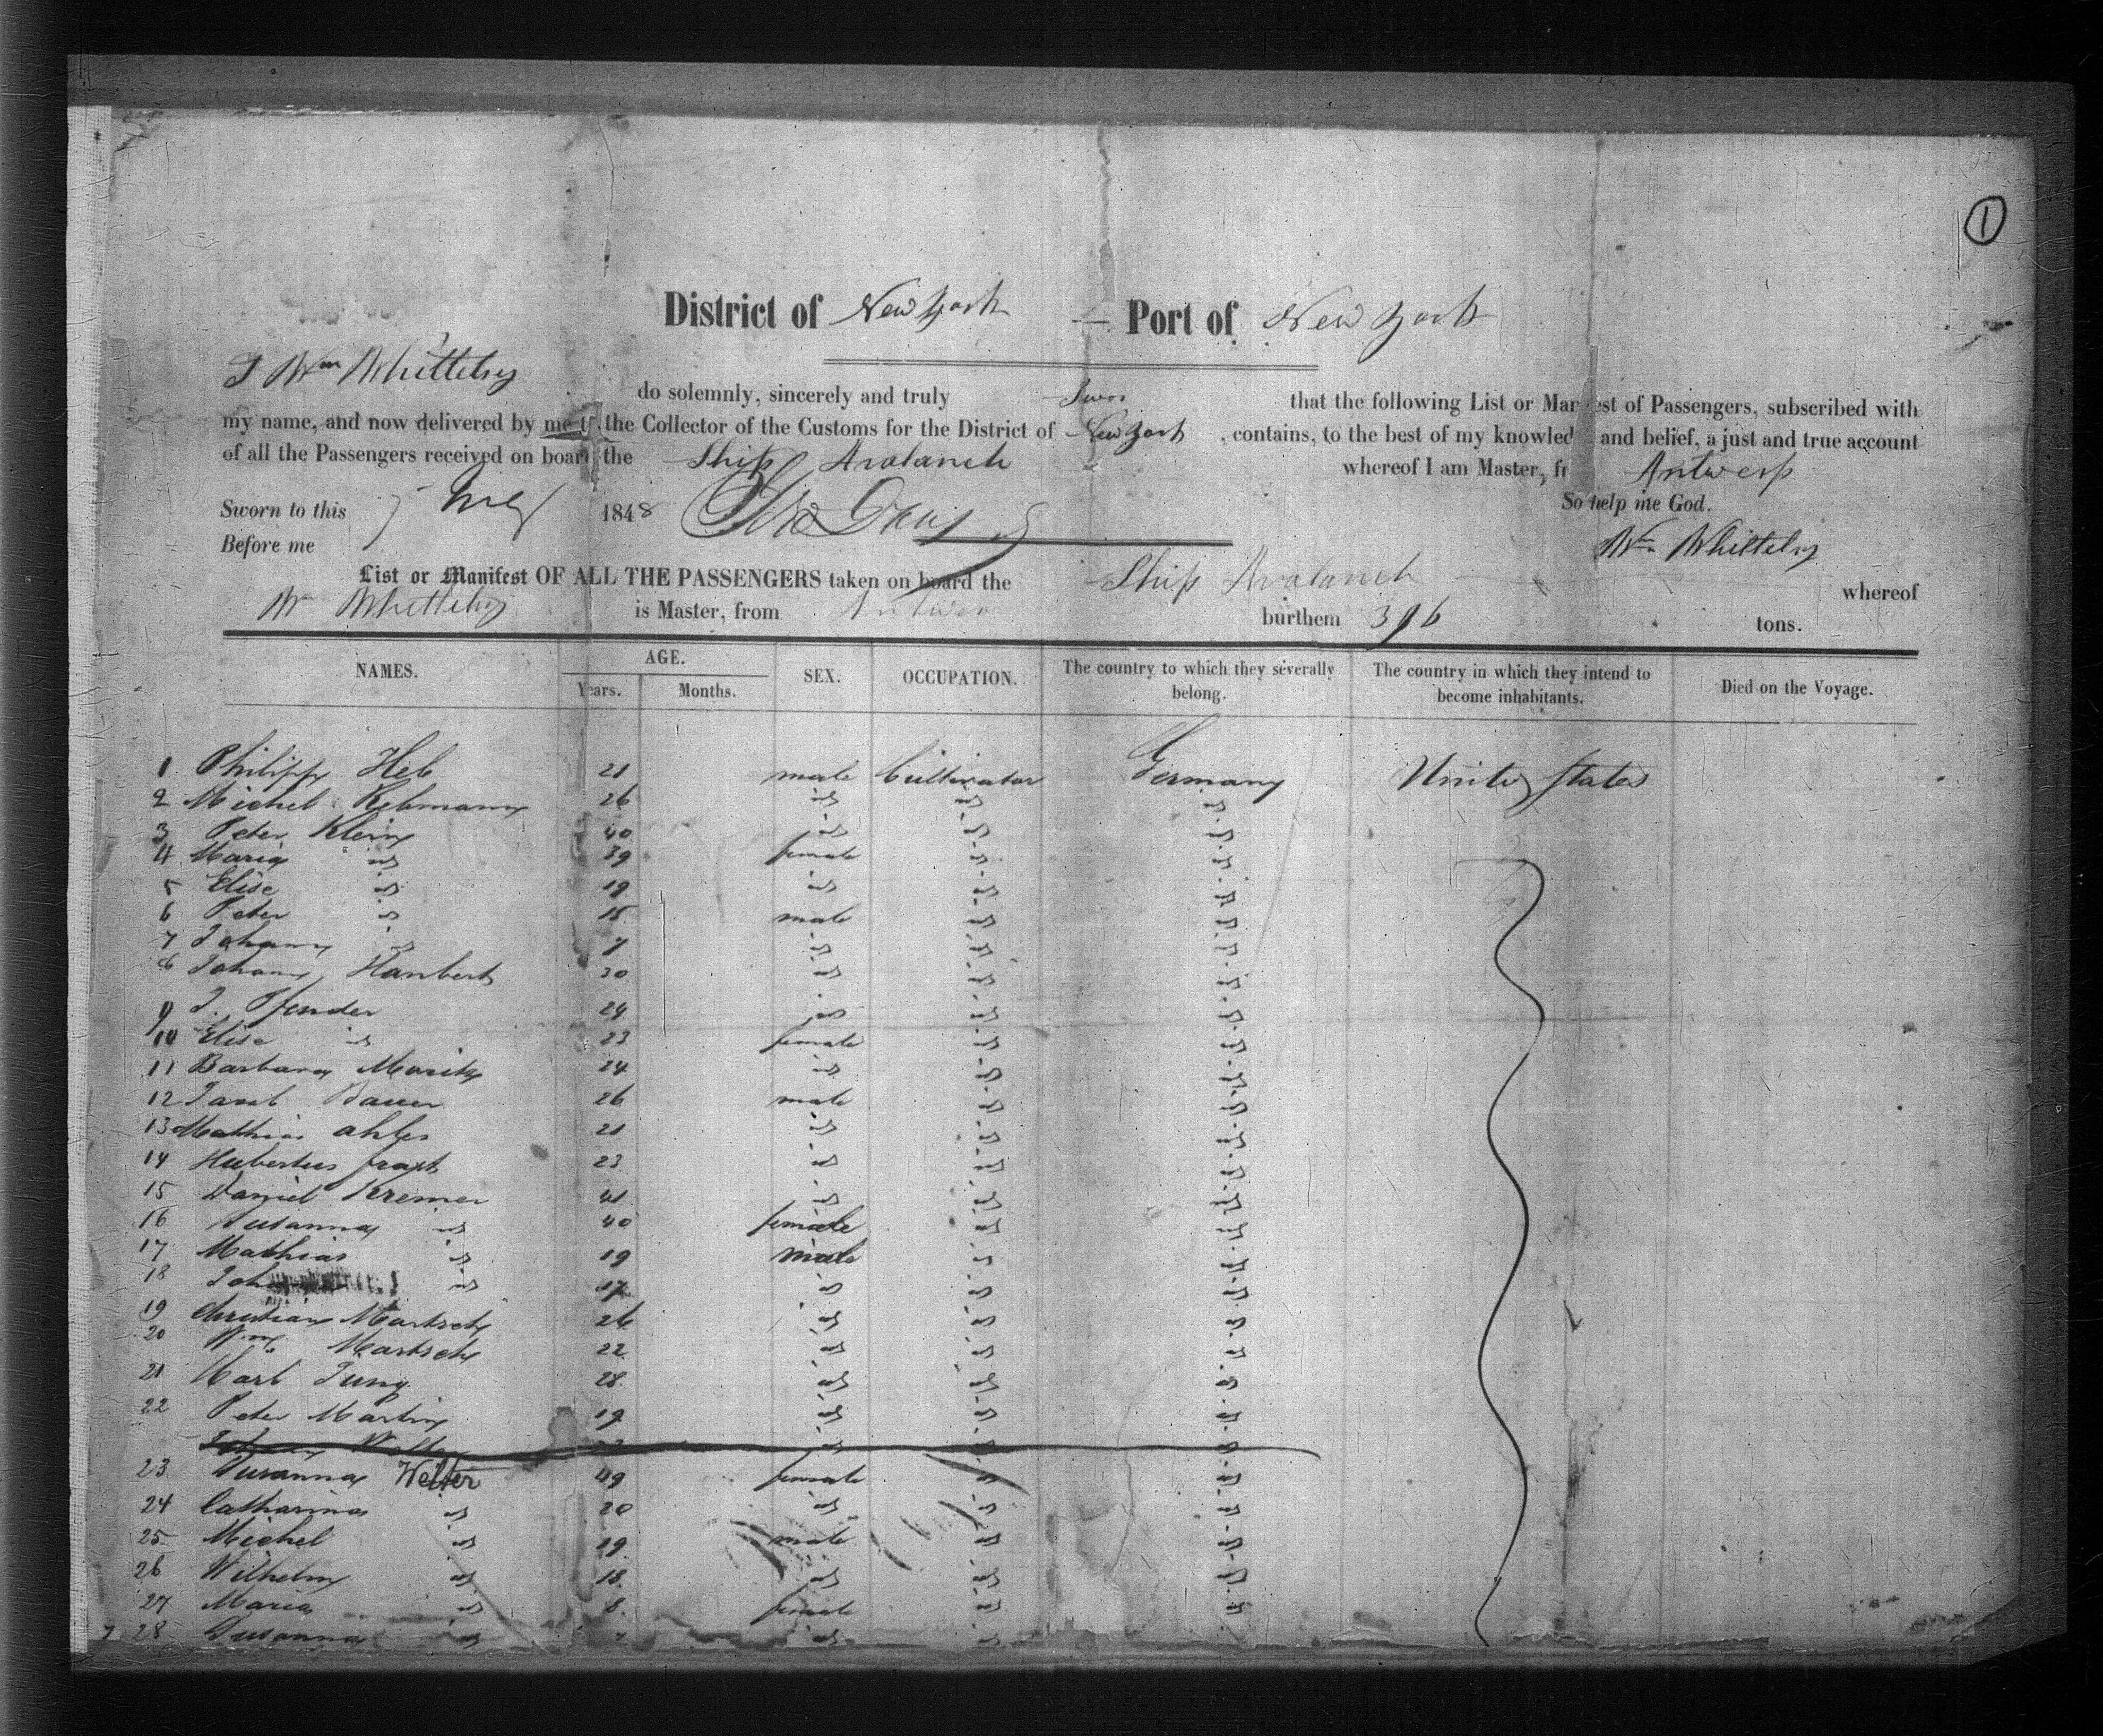 1
District of New York — Port of New York
I Wm Whittelsey
do solemnly, sincerely and truly Swear that the following List or Manifest of Passengers, subscribed with
my name, and now delivered by me to the Collector of the Customs for the District of New York, contains, to the best of my knowled and belief, a just and true account
of all the Passengers received on board the Ship Avalanch whereof I am Master, fr Antwerp
So help me God.
Sworn to this 1848
Before me
Wm Whittelsey
List or Manifest OF ALL THE PASSENGERS taken on board the Ship Avalanch whereof
Wm Whittelsey is Master, from Antwer burthem 396 tons.
NAMES. AGE. SEX. OCCUPATION. The country to which they severally belong. The country in which they intend to become inhabitants. Died on the Voyage.
Years. Months.
1 Philipp Heb 21 male Cultivator Germany United States
2 Michel Rehmann 26 id id id
3 Peter Klein 40 id id id
4 Maria id 39 female id id
5 Elise id 19 id id id
6 Peter id 15 male id id
7 Johann id 7 id id id
8 Johann Hanbert 30 id id id
9 J. Pfender 24 id id id
10 Elise id 23 female id id
11 Barbara Moritz 24 id id id
12 Jacob Bauer 26 male id id
13 Mathias Ahles 21 id id id
14 Hubertus 23 id id id
15 Daniel Kremer 41 id id id
16 Susanna id 40 female id id
17 Mathias id 19 male id id
18 Joh id 17 id id id
19 Christian Martsch 26 id id id
20 Wm Martsch 22 id id id
21 Karl Jung 28 id id id
22 Peter Martin 19 id id id
Johann Welter
23 Susanna Welter 49 female id id
24 Catharina id 20 id id id
25 Michel id 19 male id id
26 Wilhelm id 18 id id id
27 Maria id 8 female id id
28 Susanna id id id